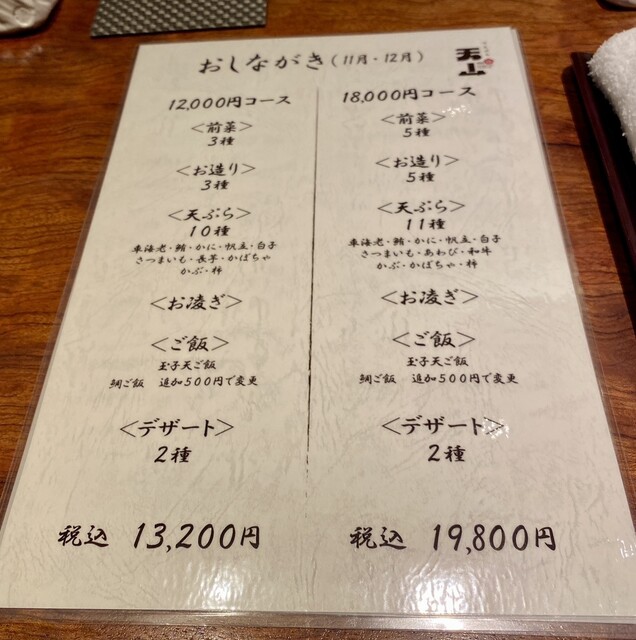 おしながき(11月・12月)
天山
12,000円コース
<前菜>
3種
<お造り>
3種
<天ぷら>
10種
車海老・鮪・かに・帆立・白子
さつまいも・長芋・かぼちゃ
かぶ・柿
<お凌ぎ>
<ご飯>
玉子天ご飯
鯛ご飯 追加500円で変更
<デザート>
2種
税込 13,200円
18,000円コース
<前菜>
5種
<お造り>
5種
<天ぷら>
11種
車海老・鮪・かに・帆立・白子
さつまいも・あわび・和牛
かぶ・かぼちゃ・柿
<お凌ぎ>
<ご飯>
玉子天ご飯
鯛ご飯 追加500円で変更
<デザート>
2種
税込 19,800円